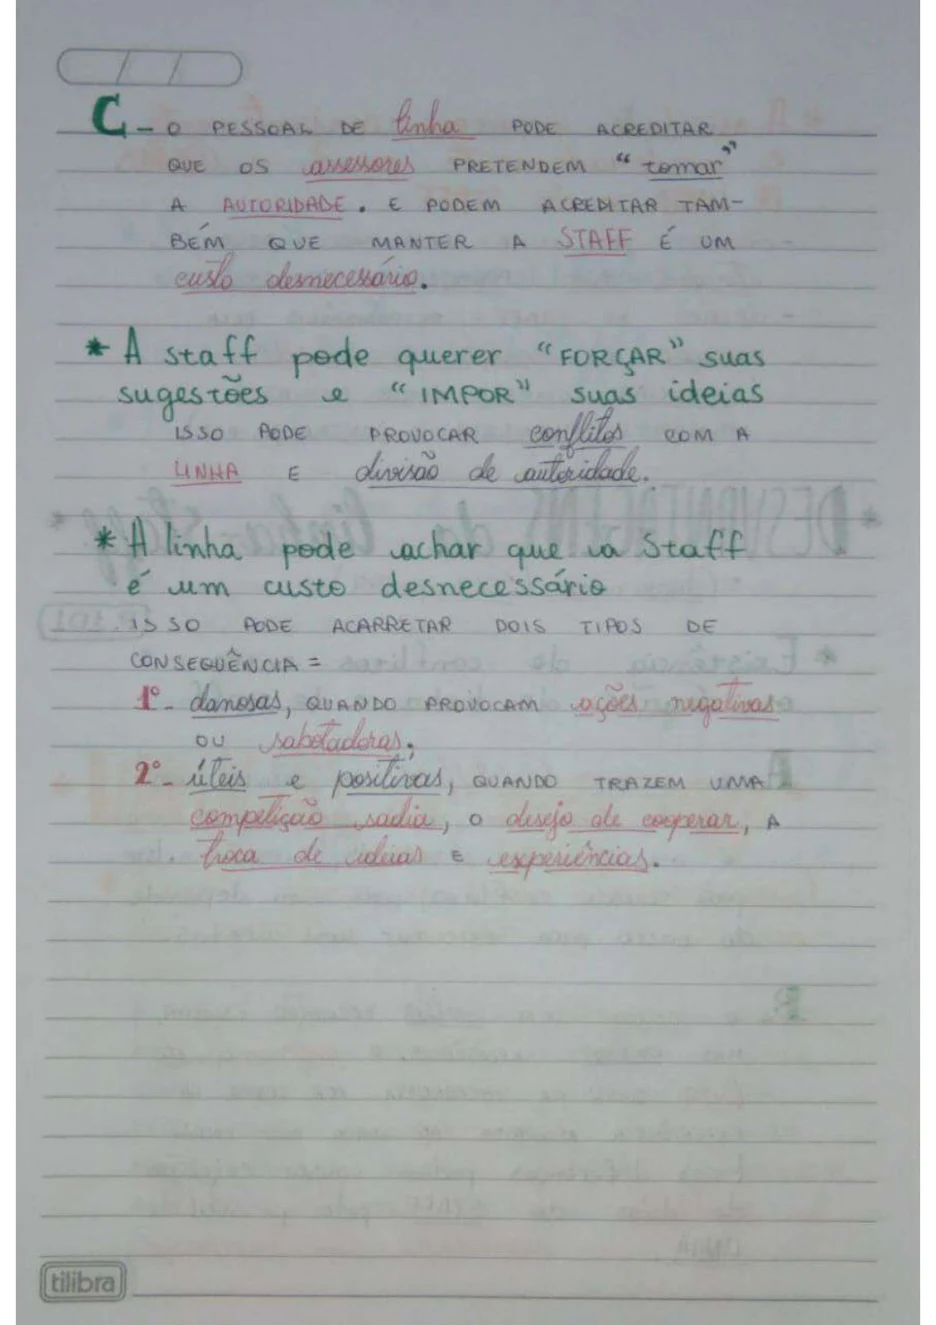 C - O PESSOAL DE linha PODE ACREDITAR
QUE OS assessores PRETENDEM "tomar"
A AUTORIDADE. E PODEM ACREDITAR TAM-
BÉM QUE MANTER A STAFF É UM
custo desnecessário.
* A staff pode querer "FORÇAR" suas
sugestões e "IMPOR" suas ideias
ISSO PODE PROVOCAR conflitos COM A
LINHA E divisão de autoridade.
* A linha pode achar que a Staff
é um custo desnecessário
ISSO PODE ACARRETAR DOIS TIPOS DE
CONSEQUÊNCIA =
1º - danosas, QUANDO PROVOCAM ações negativas
OU sabotadoras;
2º - úteis e positivas, QUANDO TRAZEM UMA
competição sadia, O desejo de cooperar, A
troca de ideias E experiências.
tilibra